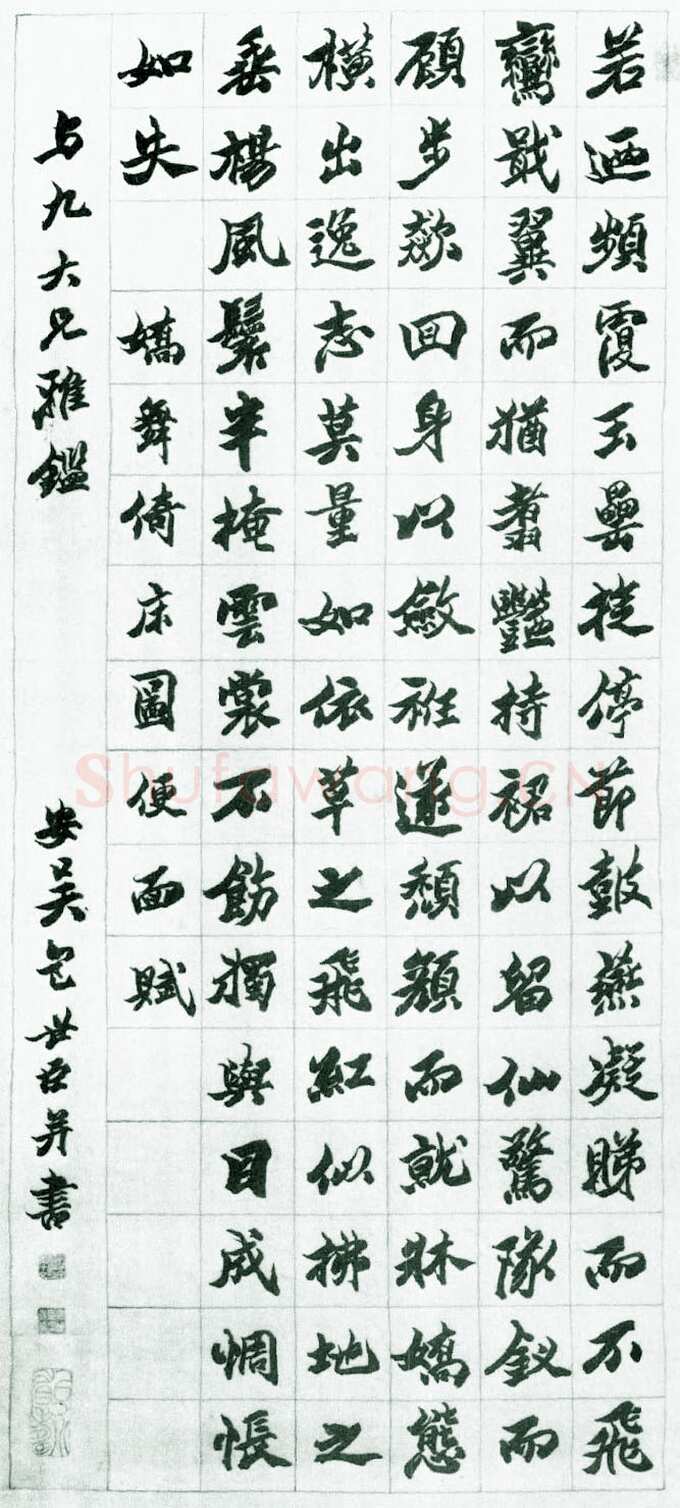 若迺頻霞玉罍捷停節鼓燕凝睇而不飛
鸞戢翼而猶翥豔持裾以留仙驚隊釵而
顧步欻回身以斂袵遂頹顏而就牀嬌態
橫出逸志莫量如依草之飛紅似拂地之
垂楊風鬟半掩雲裳不飭獨與目成惆悵
如失
嬌舞倚床圖便面賦
与九大兄雅鑑
安吴包世臣并書
Shufawang.CN